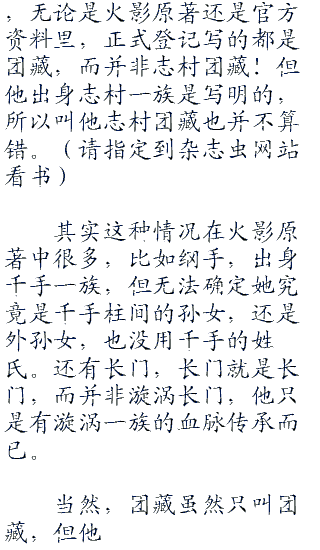 ，无论是火影原著还是官方
资料里，正式登记写的都是
团藏，而并非志村团藏！但
他出身志村一族是写明的，
所以叫他志村团藏也并不算
错。（请指定到杂志虫网站
看书）
其实这种情况在火影原
著中很多，比如纲手，出身
千手一族，但无法确定她究
竟是千手柱间的孙女，还是
外孙女，也没用千手的姓
氏。还有长门，长门就是长
门，而并非漩涡长门，他只
是有漩涡一族的血脉传承而
已。
当然，团藏虽然只叫团
藏，但他